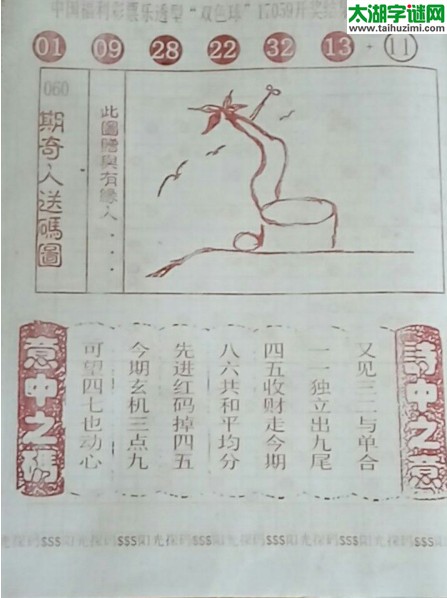 中国福利彩票乐透型“双色球”17059开奖结
太湖字谜网
www.taihuzimi.com
01 09 28 22 32 13 + 11
060
期奇人送碼圖
此圖贈與有缘人....
诗中之意
又见三二与单合
一一独立出九尾
四五收财走今期
八六共和平均分
先进红码掉四五
今期玄机三点九
可望四七也动心
意中之码
阳光探码$$$阳光探码$$$阳光探码$$$阳光探码$$$阳光探码